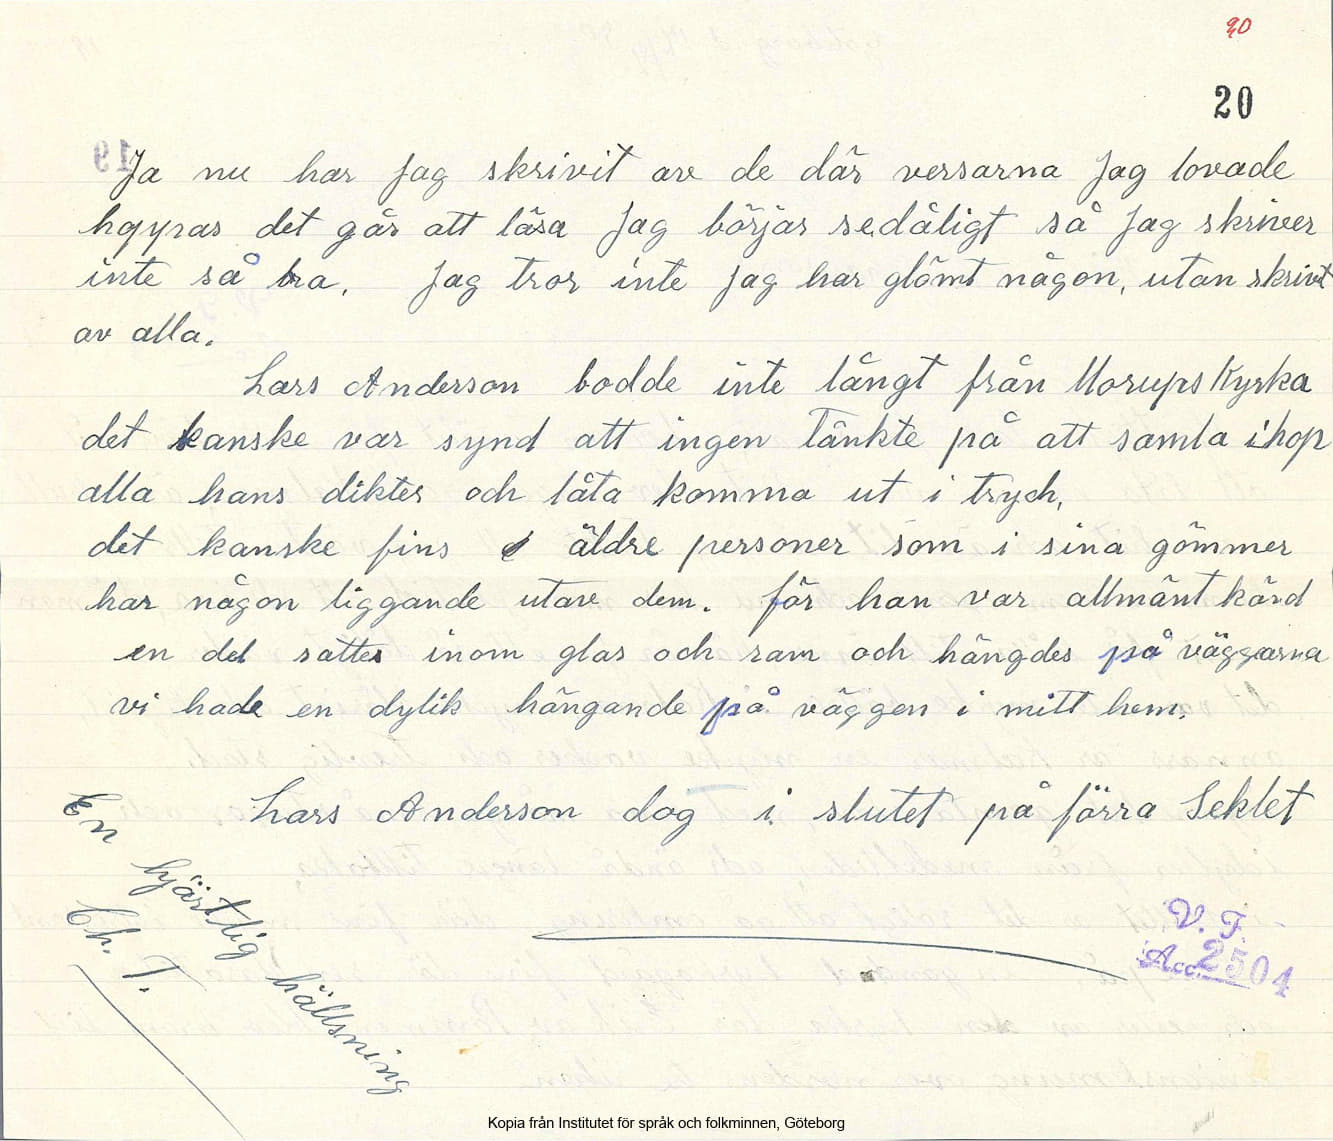 20
20
19
Ja nu har Jag skrivit av de där versarna Jag lovade
det går att läsa Jag börjar sedåligt så Jag skriver
inte så bra, Jag tror inte Jag har glömt någon, utan skrivt
av alla.
Lars Anderson bodde inte långt från Morups Kyrka
det kanske var synd att ingen tänkte på att samla ihop
alla hans dikter och låta komma ut i tryck,
det kanske fins äldre personer som i sina gömmer
har någon liggande utav dem. för han var allmänt känd
en del sattes inom glas och ram och hängdes på väggarna
vi hade en dylik hängande på väggen i mitt hem,
Lars Anderson dog i slutet på förra Seklet
En hjärtlig hällsning
Ch. T.
V. F.
Acc. 2504
Kopia från Institutet för språk och folkminnen, Göteborg